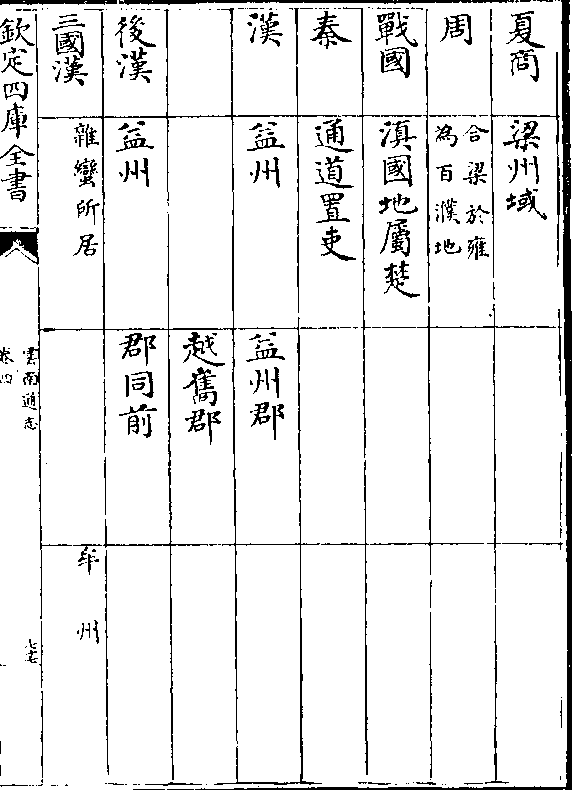 夏商
梁州域
周
合梁於雍
為百濮地
戰國
滇國地屬楚
秦
通道置吏
漢
益州
益州郡
越雟郡
後漢
益州
郡同前
三國漢
雜蠻所居
牟州
欽定四庫全書
雲南通志
卷四